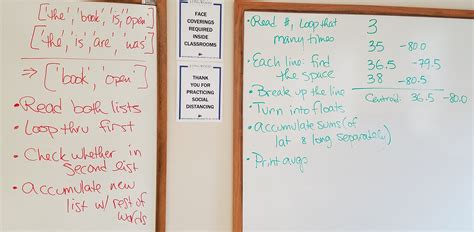 ['the', 'book', 'is', 'open']
['the', 'is', 'are', 'was']
⇒ ['book', 'open']
• Read both lists
• Loop thru first
• Check whether in
second list
• Accumulate new
list w/ rest of
words
FACE
COVERINGS
REQUIRED
INSIDE
CLASSROOMS
THANK
YOU FOR
PRACTICING
SOCIAL
DISTANCING
• Read #, Loop that
many times
• Each line: find
the space
• Break up the line
• Turn into floats
• Accumulate sums (of
lat & long separately)
• Print avgs
3
35 -80.0
36.5 -79.5
38 -80.5
Centroid: 36.5 -80.0